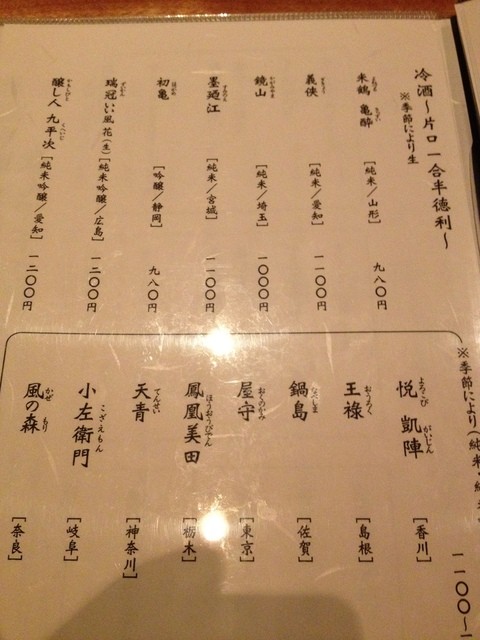 冷酒～片口一合半徳利～
※季節により生
米鶴 亀酔 [純米／山形] 九八〇円
義侠 [純米／愛知] 一一〇〇円
鏡山 [純米／埼玉] 一〇〇〇円
墨廼江 [純米／宮城] 一一〇〇円
初亀 [吟醸／静岡] 九八〇円
瑞冠いい風 花(生) [純米吟醸／広島] 一二〇〇円
醸し人 九平次 [純米吟醸／愛知] 一二〇〇円
※季節により(純米・純
一一〇〇～一
悦 凱陣 [香川]
王祿 [島根]
鍋島 [佐賀]
屋守 [東京]
鳳凰美田 [栃木]
天青 [神奈川]
小左衛門 [岐阜]
風の森 [奈良]